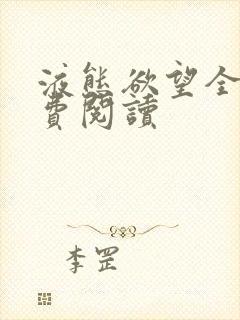 液態欲望全
費閱讀
李罡